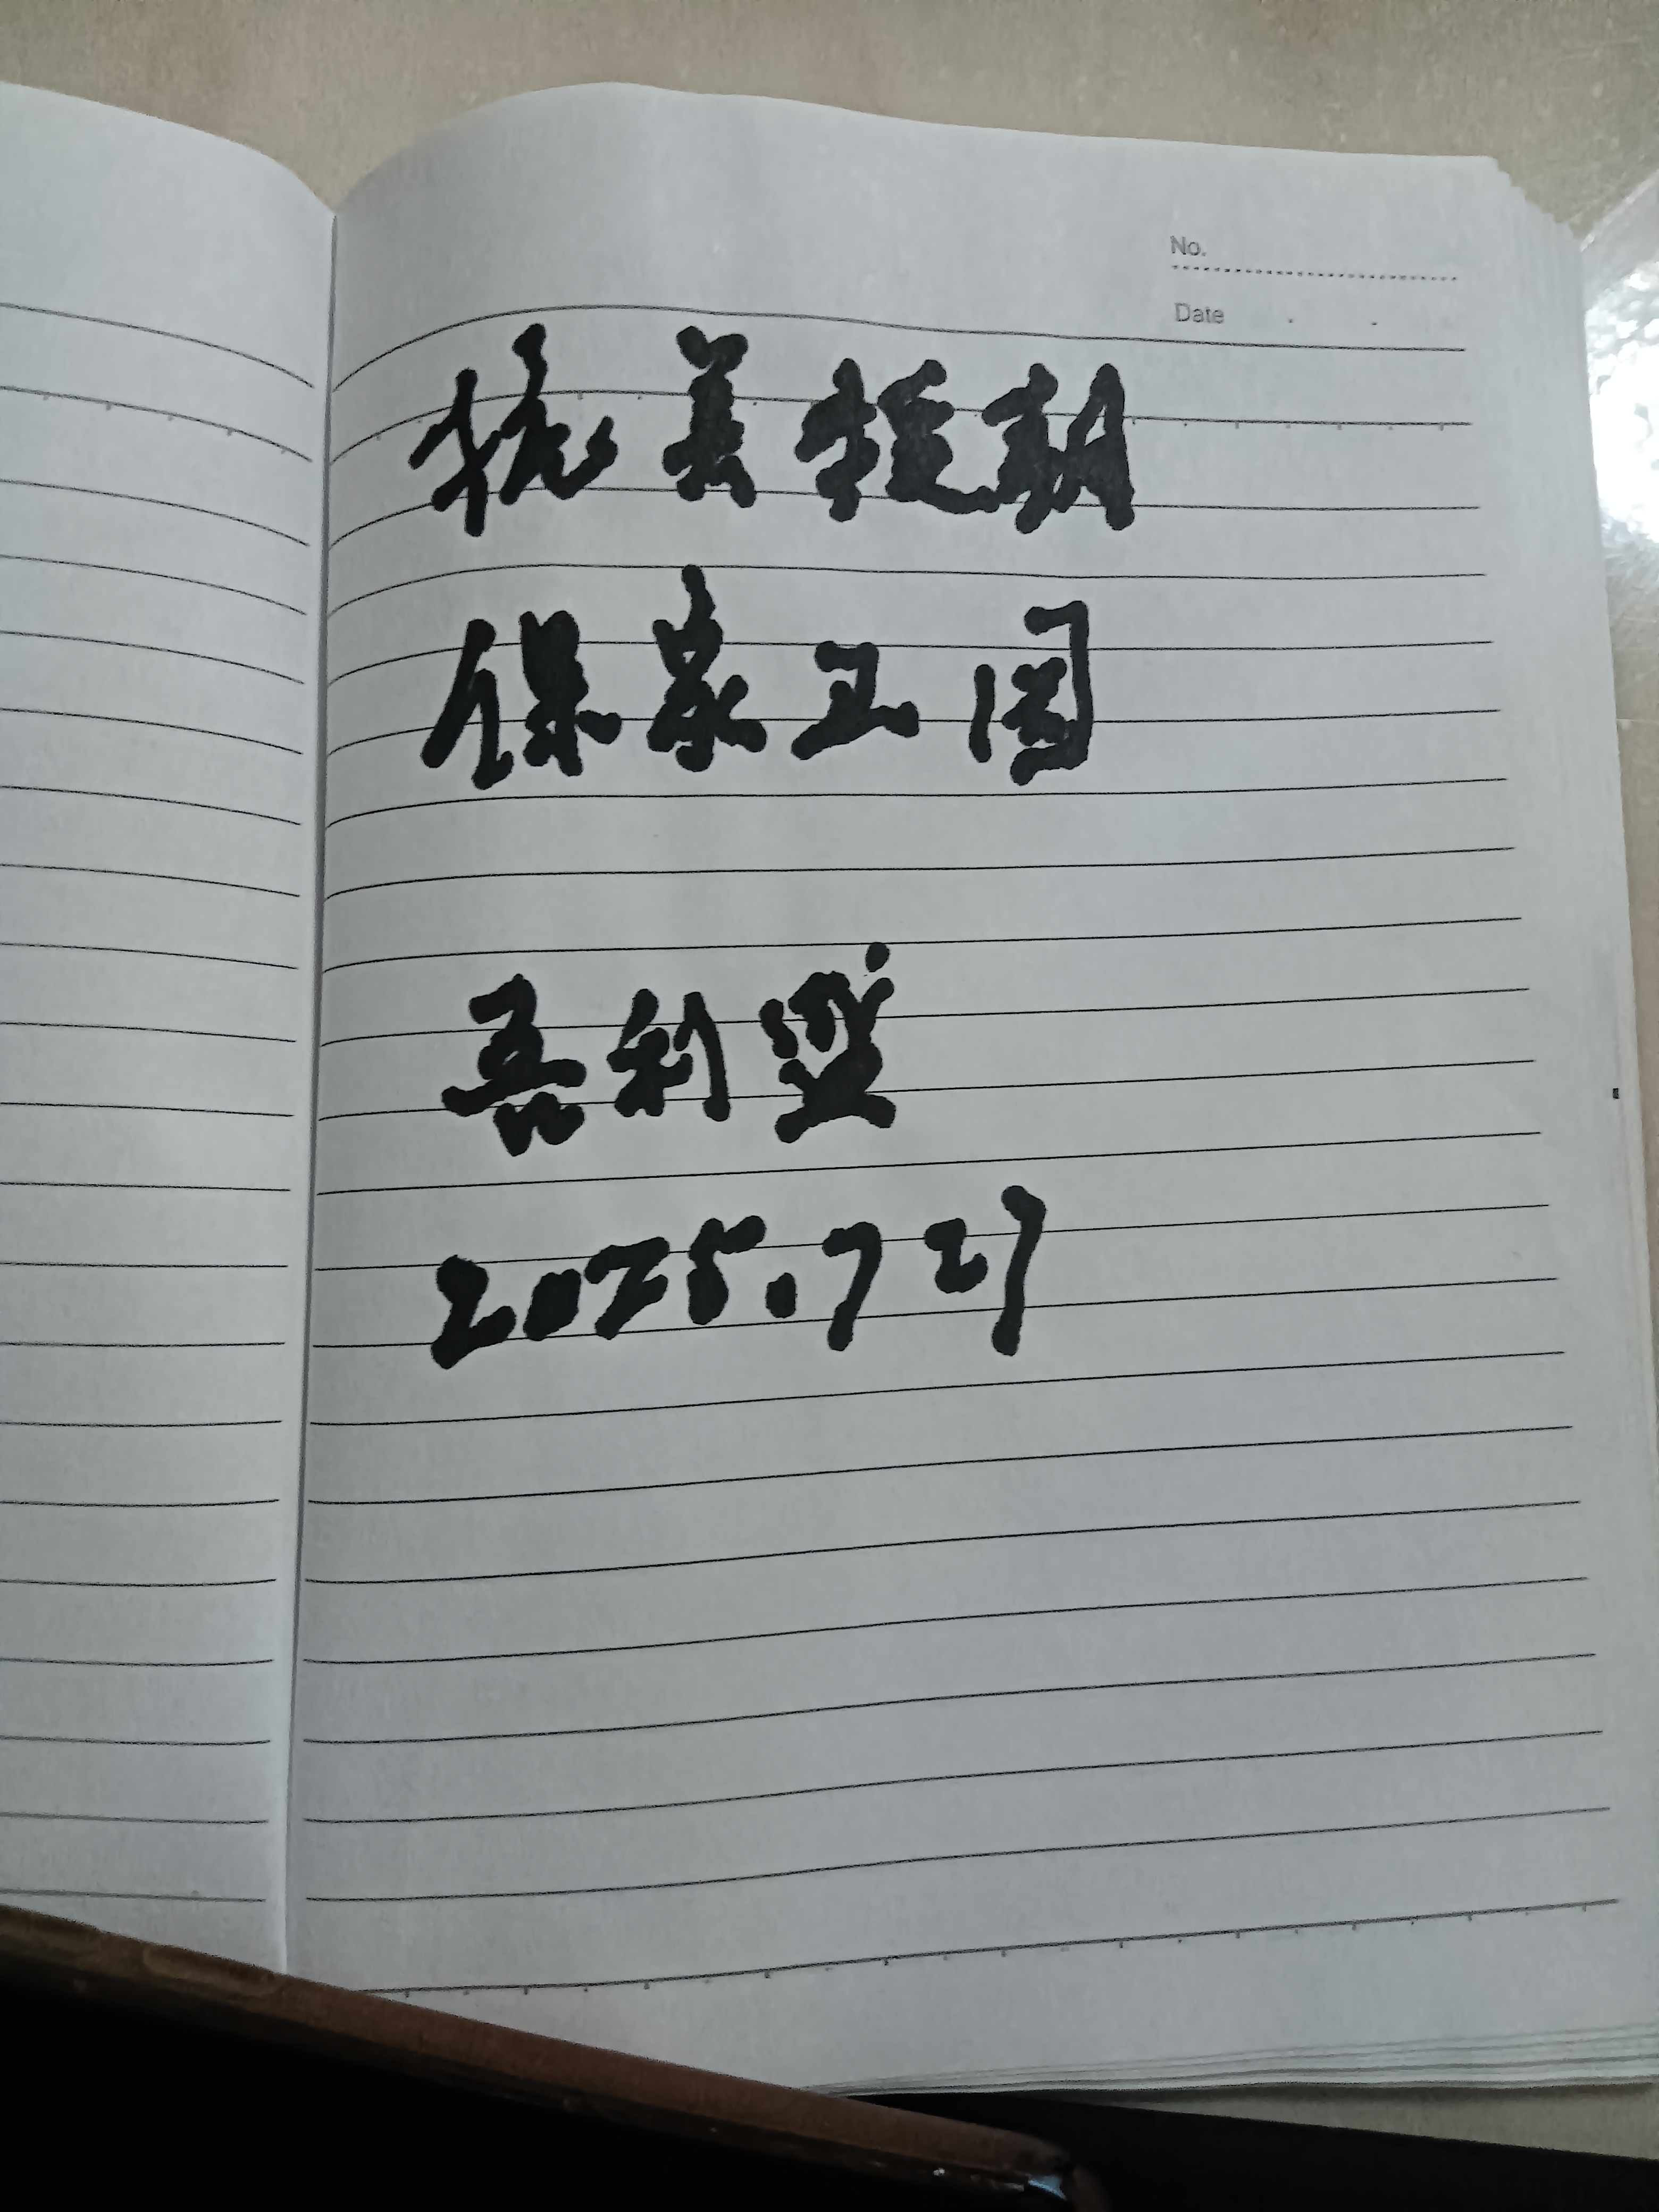 No.
Date
抗美援朝
保家卫国
吾利
2025.7 27